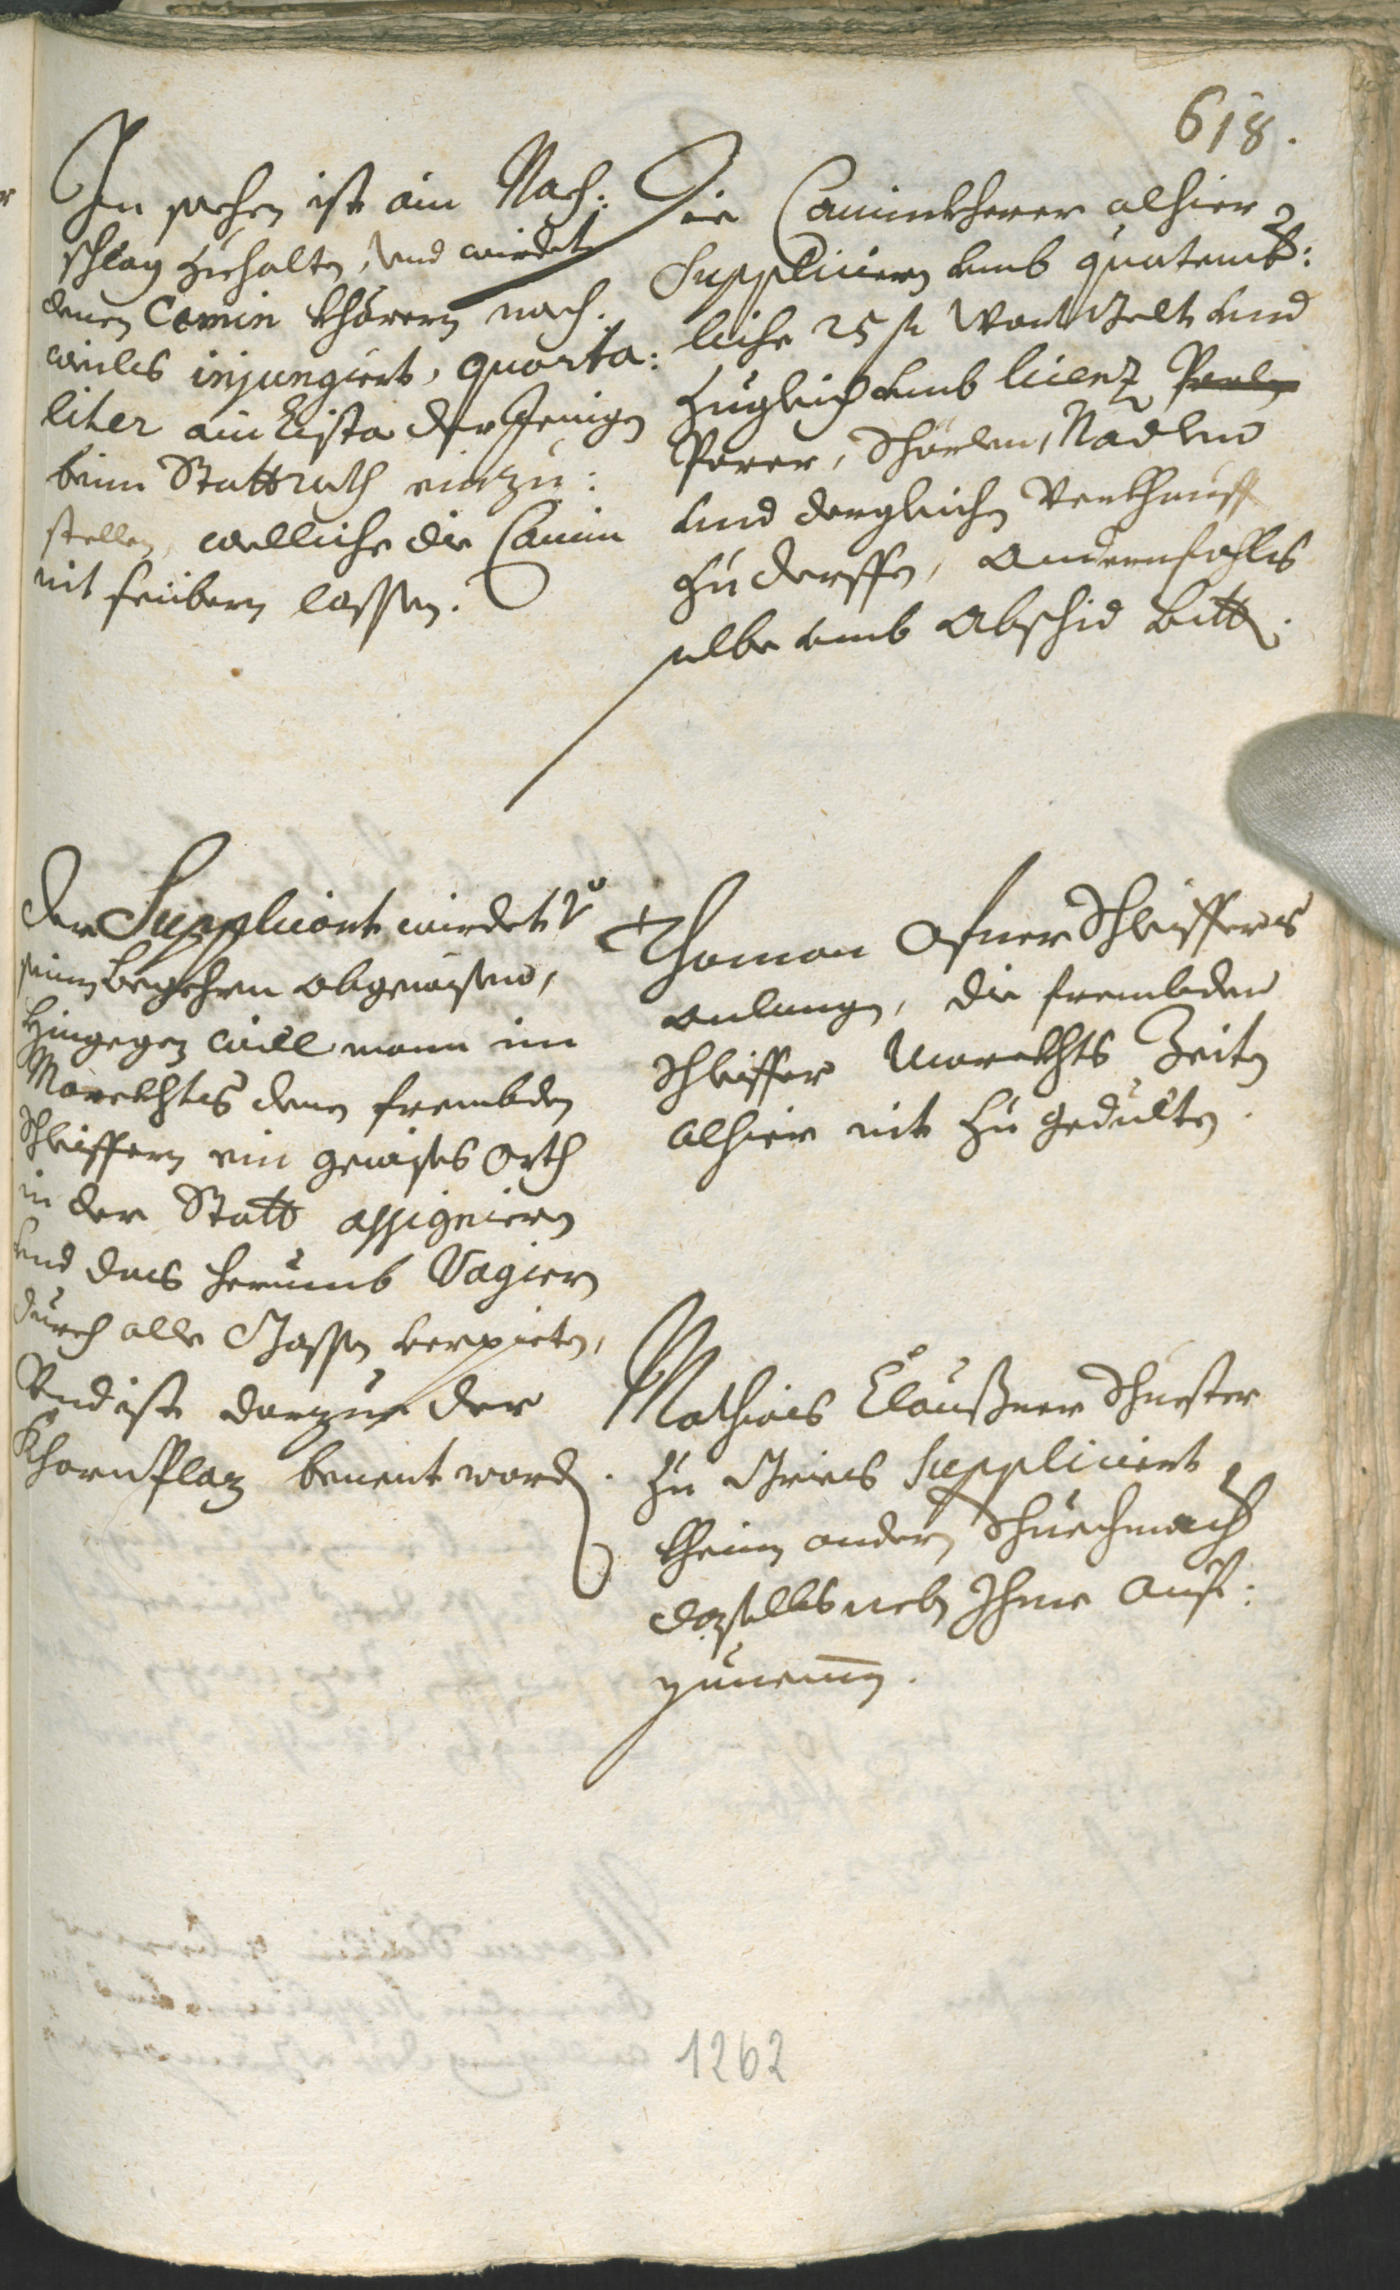 618.
In sachen ist ain Nach:
schlag zuhalten, und wirdet
denen Camin khörern nach.
weills injungiert, quarta:
liter ain Lista derJenigen
beim Stattrath einzu:
stellen, welliche die Camin
nit seübern lassen.
Die Caminkherer alhier
Suppliciern umb quatemb:
liche 25 fl Wartgelt und
zugleich umb licenz
Porer, Schärlen, Nadlen
und dergleichen Verkhauff
zu derffen, andernfahls
selbe umb Abschid bitten.
Der Supplicant wirdet
seines begehrn abgewisen,
Hingegen will mann im
Marckhts denen frembden
Schleiffern ein gewises Orth
in der Statt assigniern
und das herumb Vagiern
durch alle Gassen verpieten,
Und ist darzue der
KhornPlaz benent worden.
Thoman Ofner Schleiffers
anlangen, die frembden
Schleiffer Marckhts Zeiten
alhier nit zu gedulten.
Mathias Claußner Schuester
zu Gries Suppliciert
kheinen andern Schuechmacher
daselbs neben Ihme auf:
zunemen.
1262